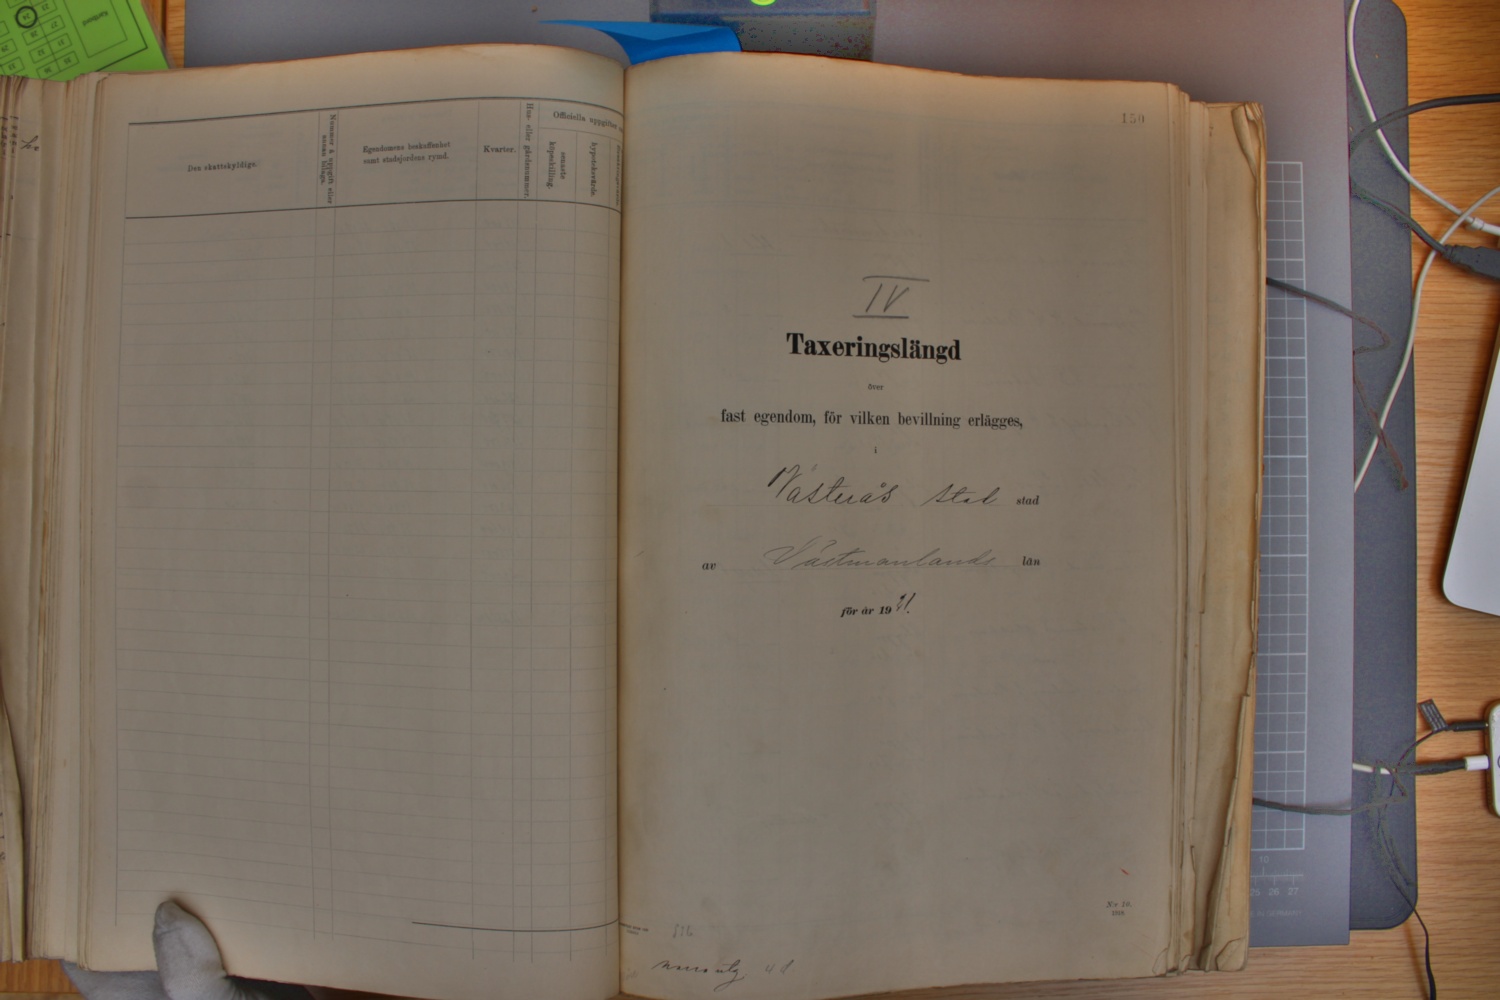 Den skattskyldige.
Nummer å uppgift eller annan bilaga.
Egendomens beskaffenhet
samt stadsjordens rymd.
Kvarter.
Hus- eller gårdsnummer.
Officiella uppgifter
senaste
köpeskilling.
hypoteksvärde.
150
IV
Taxeringslängd
över
fast egendom, för vilken bevillning erlägges,
i
Västerås stad stad
av Västmanlands län
för år 1921.
N:o 10.
1918
10
25 26 27